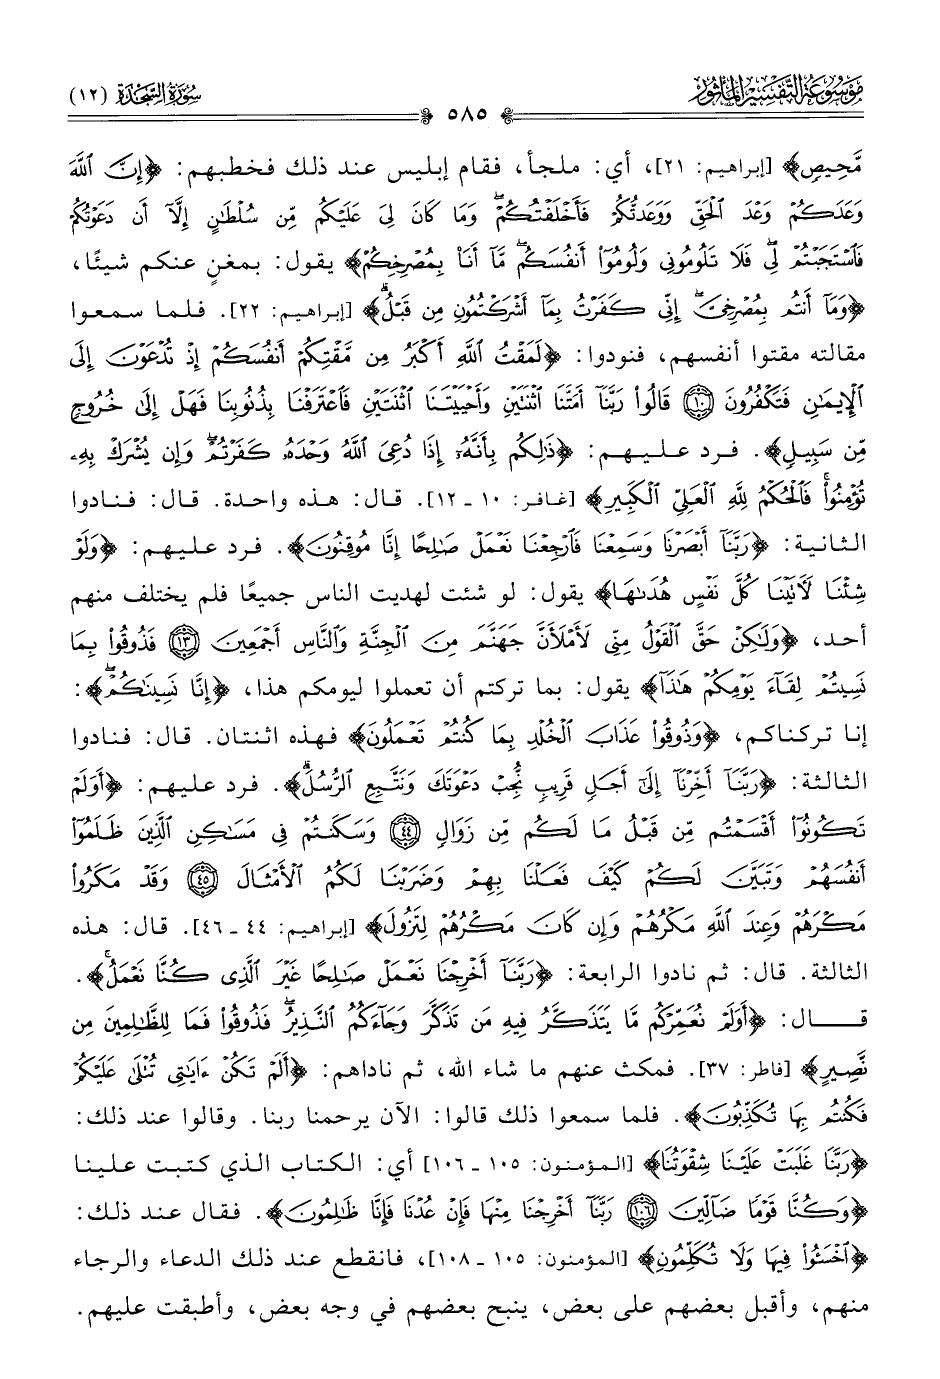 مَوْسُوعَةُ التَّفْسِيرِ المَأْثُور
٥٨٥
سُورَةُ السَّجْدَةِ (١٢)
مَّحِيصٍ﴾ [إبراهيم: ٢١]، أي: ملجأ، فقام إبليس عند ذلك فخطبهم: ﴿إِنَّ ٱللَّهَ
وَعَدَكُمْ وَعْدَ ٱلْحَقِّ وَوَعَدتُّكُمْ فَأَخْلَفْتُكُمْۖ وَمَا كَانَ لِىَ عَلَيْكُم مِّن سُلْطَٰنٍ إِلَّآ أَن دَعَوْتُكُمْ
فَٱسْتَجَبْتُمْ لِىۖ فَلَا تَلُومُونِى وَلُومُوٓا۟ أَنفُسَكُمۖ مَّآ أَنَا۠ بِمُصْرِخِكُمْ﴾ يقول: بمغنٍ عنكم شيئًا،
﴿وَمَآ أَنتُم بِمُصْرِخِىَّۖ إِنِّى كَفَرْتُ بِمَآ أَشْرَكْتُمُونِ مِن قَبْلُۗ﴾ [إبراهيم: ٢٢]. فلما سمعوا
مقالته مقتوا أنفسهم، فنودوا: ﴿لَمَقْتُ ٱللَّهِ أَكْبَرُ مِن مَّقْتِكُمْ أَنفُسَكُمْ إِذْ تُدْعَوْنَ إِلَى
ٱلْإِيمَٰنِ فَتَكْفُرُونَ ۝١٠ قَالُوا۟ رَبَّنَآ أَمَتَّنَا ٱثْنَتَيْنِ وَأَحْيَيْتَنَا ٱثْنَتَيْنِ فَٱعْتَرَفْنَا بِذُنُوبِنَا فَهَلْ إِلَىٰ خُرُوجٍ
مِّن سَبِيلٍ﴾. فرد عليهم: ﴿ذَٰلِكُم بِأَنَّهُۥٓ إِذَا دُعِىَ ٱللَّهُ وَحْدَهُۥ كَفَرْتُمْۖ وَإِن يُشْرَكْ بِهِۦ
تُؤْمِنُوا۟ۚ فَٱلْحُكْمُ لِلَّهِ ٱلْعَلِىِّ ٱلْكَبِيرِ﴾ [غافر: ١٠ ـ ١٢]. قال: هذه واحدة. قال: فنادوا
الثانية: ﴿رَبَّنَآ أَبْصَرْنَا وَسَمِعْنَا فَٱرْجِعْنَا نَعْمَلْ صَٰلِحًا إِنَّا مُوقِنُونَ﴾. فرد عليهم: ﴿وَلَوْ
شِئْنَا لَءَاتَيْنَا كُلَّ نَفْسٍ هُدَىٰهَا﴾ يقول: لو شئت لهديت الناس جميعًا فلم يختلف منهم
أحد، ﴿وَلَٰكِنْ حَقَّ ٱلْقَوْلُ مِنِّى لَأَمْلَأَنَّ جَهَنَّمَ مِنَ ٱلْجِنَّةِ وَٱلنَّاسِ أَجْمَعِينَ ۝١٣ فَذُوقُوا۟ بِمَا
نَسِيتُمْ لِقَآءَ يَوْمِكُمْ هَٰذَآ﴾ يقول: بما تركتم أن تعملوا ليومكم هذا، ﴿إِنَّا نَسِينَٰكُمْۖ﴾:
إنا تركناكم، ﴿وَذُوقُوا۟ عَذَابَ ٱلْخُلْدِ بِمَا كُنتُمْ تَعْمَلُونَ﴾ فهذه اثنتان. قال: فنادوا
الثالثة: ﴿رَبَّنَآ أَخِّرْنَآ إِلَىٰٓ أَجَلٍ قَرِيبٍ نُّجِبْ دَعْوَتَكَ وَنَتَّبِعِ ٱلرُّسُلَۗ﴾. فرد عليهم: ﴿أَوَلَمْ
تَكُونُوٓا۟ أَقْسَمْتُم مِّن قَبْلُ مَا لَكُم مِّن زَوَالٍ ۝٤٤ وَسَكَنتُمْ فِى مَسَٰكِنِ ٱلَّذِينَ ظَلَمُوٓا۟
أَنفُسَهُمْ وَتَبَيَّنَ لَكُمْ كَيْفَ فَعَلْنَا بِهِمْ وَضَرَبْنَا لَكُمُ ٱلْأَمْثَالَ ۝٤٥ وَقَدْ مَكَرُوا۟
مَكْرَهُمْ وَعِندَ ٱللَّهِ مَكْرُهُمْ وَإِن كَانَ مَكْرُهُمْ لِتَزُولَ﴾ [إبراهيم: ٤٤ ـ ٤٦]. قال: هذه
الثالثة. قال: ثم نادوا الرابعة: ﴿رَبَّنَآ أَخْرِجْنَا نَعْمَلْ صَٰلِحًا غَيْرَ ٱلَّذِى كُنَّا نَعْمَلُۚ﴾.
قـــال: ﴿أَوَلَمْ نُعَمِّرْكُم مَّا يَتَذَكَّرُ فِيهِ مَن تَذَكَّرَ وَجَآءَكُمُ ٱلنَّذِيرُۖ فَذُوقُوا۟ فَمَا لِلظَّٰلِمِينَ مِن
نَّصِيرٍ﴾ [فاطر: ٣٧]. فمكث عنهم ما شاء الله، ثم ناداهم: ﴿أَلَمْ تَكُنْ ءَايَٰتِى تُتْلَىٰ عَلَيْكُمْ
فَكُنتُم بِهَا تُكَذِّبُونَ﴾. فلما سمعوا ذلك قالوا: الآن يرحمنا ربنا. وقالوا عند ذلك:
﴿رَبَّنَا غَلَبَتْ عَلَيْنَا شِقْوَتُنَا﴾ [المؤمنون: ١٠٥ ـ ١٠٦] أي: الكتاب الذي كتبت علينا
﴿وَكُنَّا قَوْمًا ضَآلِّينَ ۝١٠٦ رَبَّنَآ أَخْرِجْنَا مِنْهَا فَإِنْ عُدْنَا فَإِنَّا ظَٰلِمُونَ﴾. فقال عند ذلك:
﴿ٱخْسَـُٔوا۟ فِيهَا وَلَا تُكَلِّمُونِ﴾ [المؤمنون: ١٠٥ ـ ١٠٨]، فانقطع عند ذلك الدعاء والرجاء
منهم، وأقبل بعضهم على بعض، ينبح بعضهم في وجه بعض، وأطبقت عليهم.